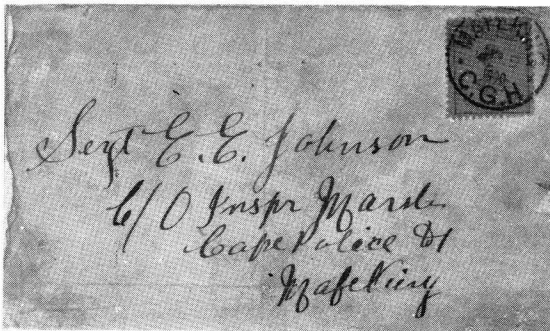 MAFEKING
C.G.H
Sergt E. E. Johnson
C/O Inspr Marsh
Cape Police D1
Mafeking